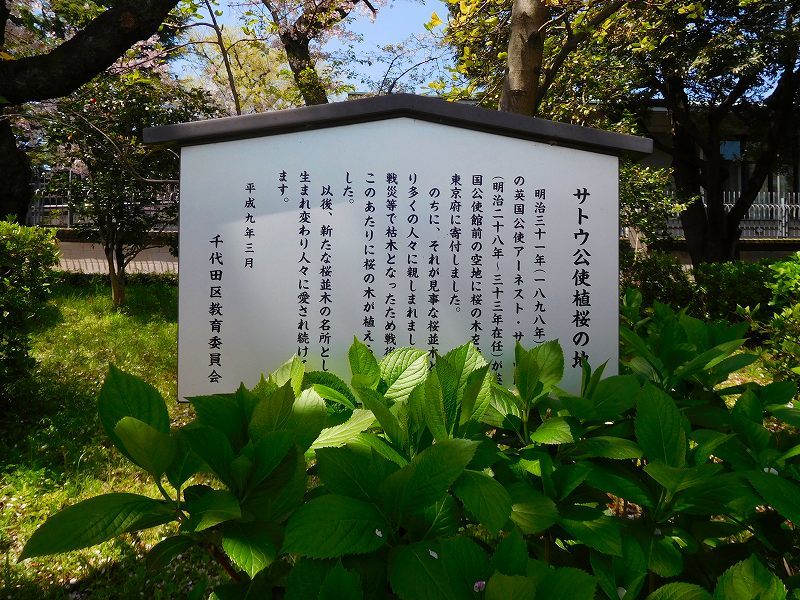 サトウ公使植桜の地
明治三十一年(一八九八年)
の英国公使アーネスト・サ
(明治二十八年~三十三年在任)が
国公使館前の空地に桜の木を
東京府に寄付しました。
のちに、それが見事な桜並木
り多くの人々に親しまれまし
戦災等で枯木となったため戦後
このあたりに桜の木が植え
した。
以後、新たな桜並木の名所とし
生まれ変わり人々に愛され続け
ます。
平成九年三月
千代田区教育委員会